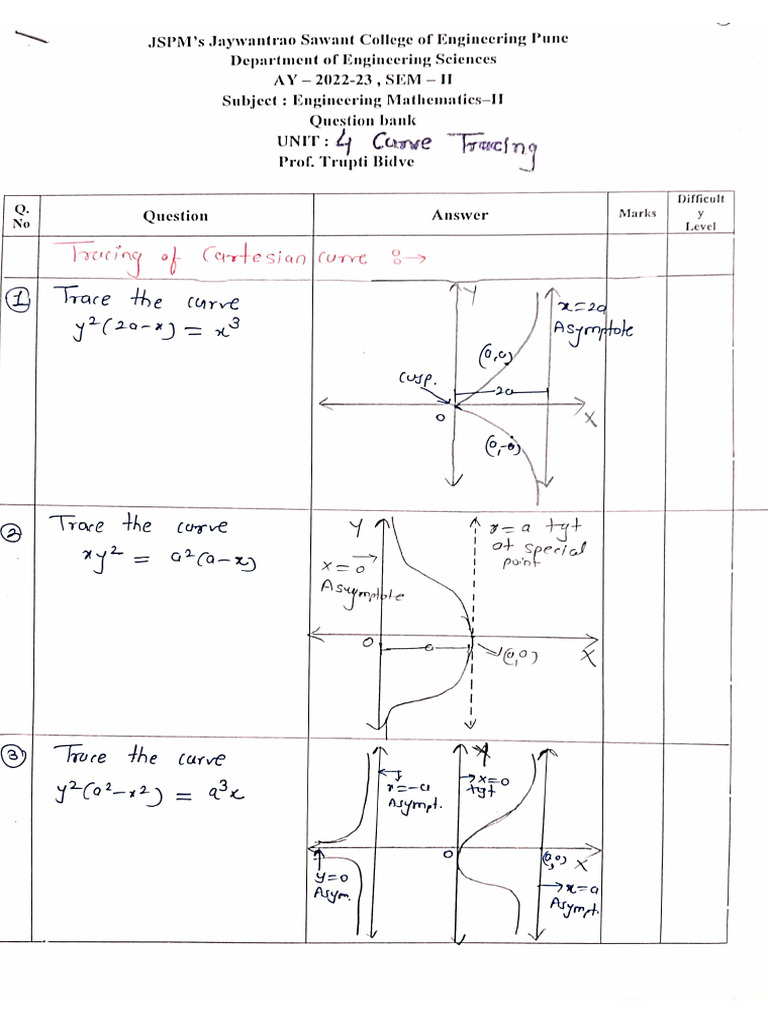 JSPM's Jaywantrao Sawant College of Engineering Pune
Department of Engineering Sciences
AY – 2022-23 , SEM – II
Subject : Engineering Mathematics–II
Question bank
UNIT : 4 Curve Tracing
Prof. Trupti Bidve
Q. No Question Answer Marks Difficult y Level
Tracing of Cartesian curve :→
① Trace the curve
y²(2a-x) = x³
Y
x=2a
Asymptote
(a,a)
cusp.
2a
O
X
(a,-a)
② Trace the curve
xy² = a²(a-x)
Y
x=a tgt
at special
point
x=0
Asymptote
O
a
(a,0)
X
③ Trace the curve
y²(a²-x²) = a³x
x=-a
Asympt.
x=0
tgt
O
(a,0)
X
y=0
Asym.
x=a
Asympt.